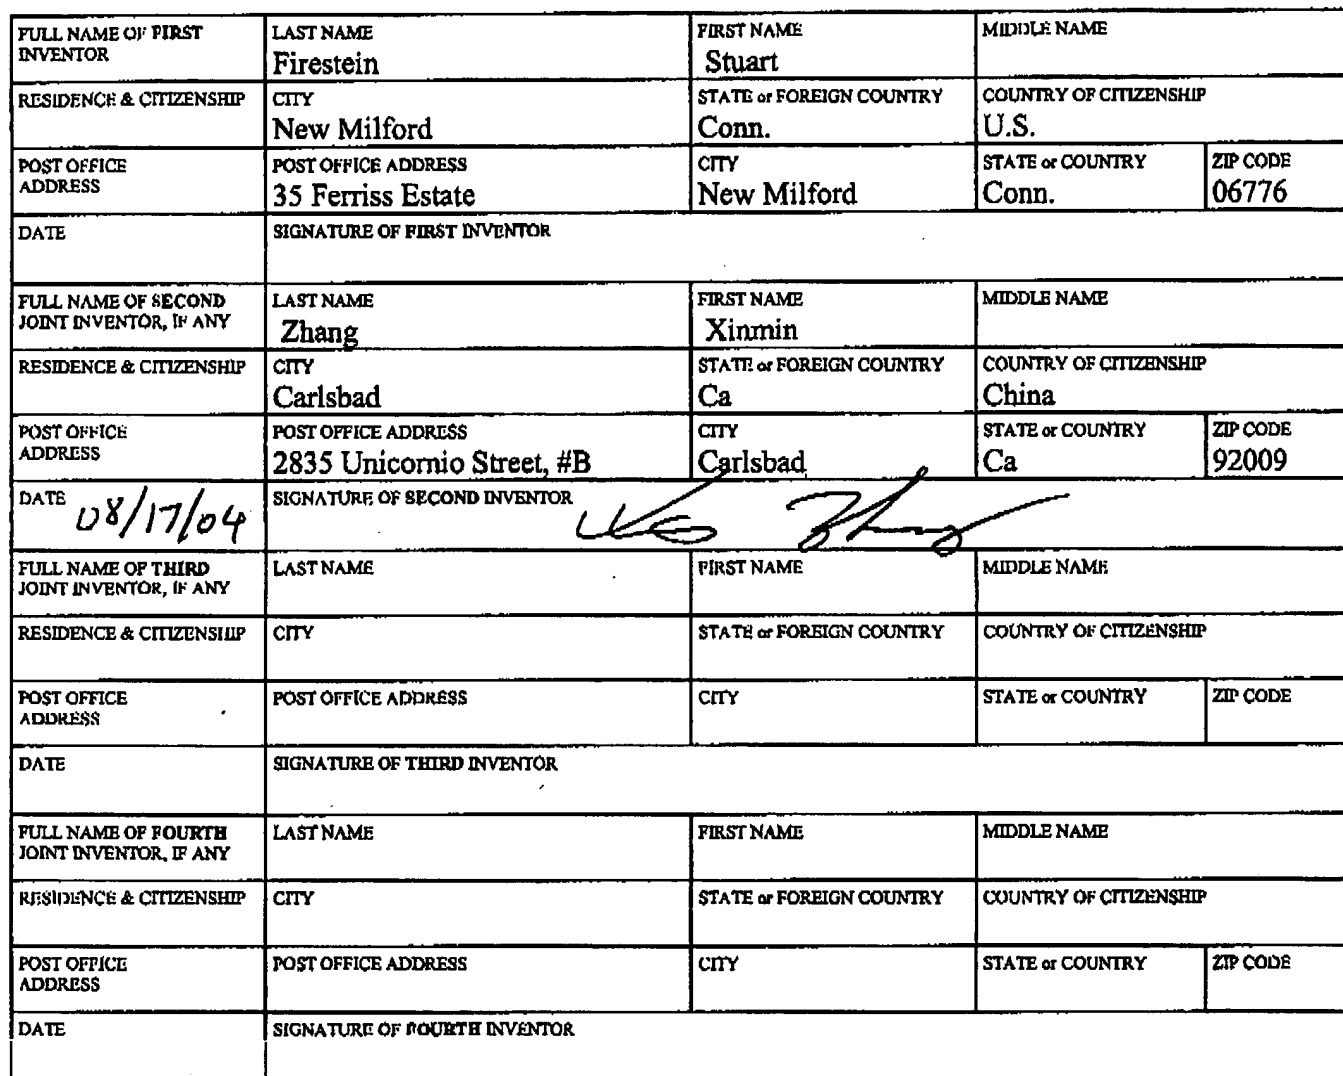 FULL NAME OF FIRST INVENTOR LAST NAME FIRST NAME MIDDLE NAME
Firestein Stuart
RESIDENCE & CITIZENSHIP CITY STATE or FOREIGN COUNTRY COUNTRY OF CITIZENSHIP
New Milford Conn. U.S.
POST OFFICE ADDRESS POST OFFICE ADDRESS CITY STATE or COUNTRY ZIP CODE
35 Ferriss Estate New Milford Conn. 06776
DATE SIGNATURE OF FIRST INVENTOR
FULL NAME OF SECOND JOINT INVENTOR, IF ANY LAST NAME FIRST NAME MIDDLE NAME
Zhang Xinmin
RESIDENCE & CITIZENSHIP CITY STATE or FOREIGN COUNTRY COUNTRY OF CITIZENSHIP
Carlsbad Ca China
POST OFFICE ADDRESS POST OFFICE ADDRESS CITY STATE or COUNTRY ZIP CODE
2835 Unicornio Street, #B Carlsbad Ca 92009
DATE 08/17/04 SIGNATURE OF SECOND INVENTOR Zhang
FULL NAME OF THIRD JOINT INVENTOR, IF ANY LAST NAME FIRST NAME MIDDLE NAME
RESIDENCE & CITIZENSHIP CITY STATE or FOREIGN COUNTRY COUNTRY OF CITIZENSHIP
POST OFFICE ADDRESS POST OFFICE ADDRESS CITY STATE or COUNTRY ZIP CODE
DATE SIGNATURE OF THIRD INVENTOR
FULL NAME OF FOURTH JOINT INVENTOR, IF ANY LAST NAME FIRST NAME MIDDLE NAME
RESIDENCE & CITIZENSHIP CITY STATE or FOREIGN COUNTRY COUNTRY OF CITIZENSHIP
POST OFFICE ADDRESS POST OFFICE ADDRESS CITY STATE or COUNTRY ZIP CODE
DATE SIGNATURE OF FOURTH INVENTOR